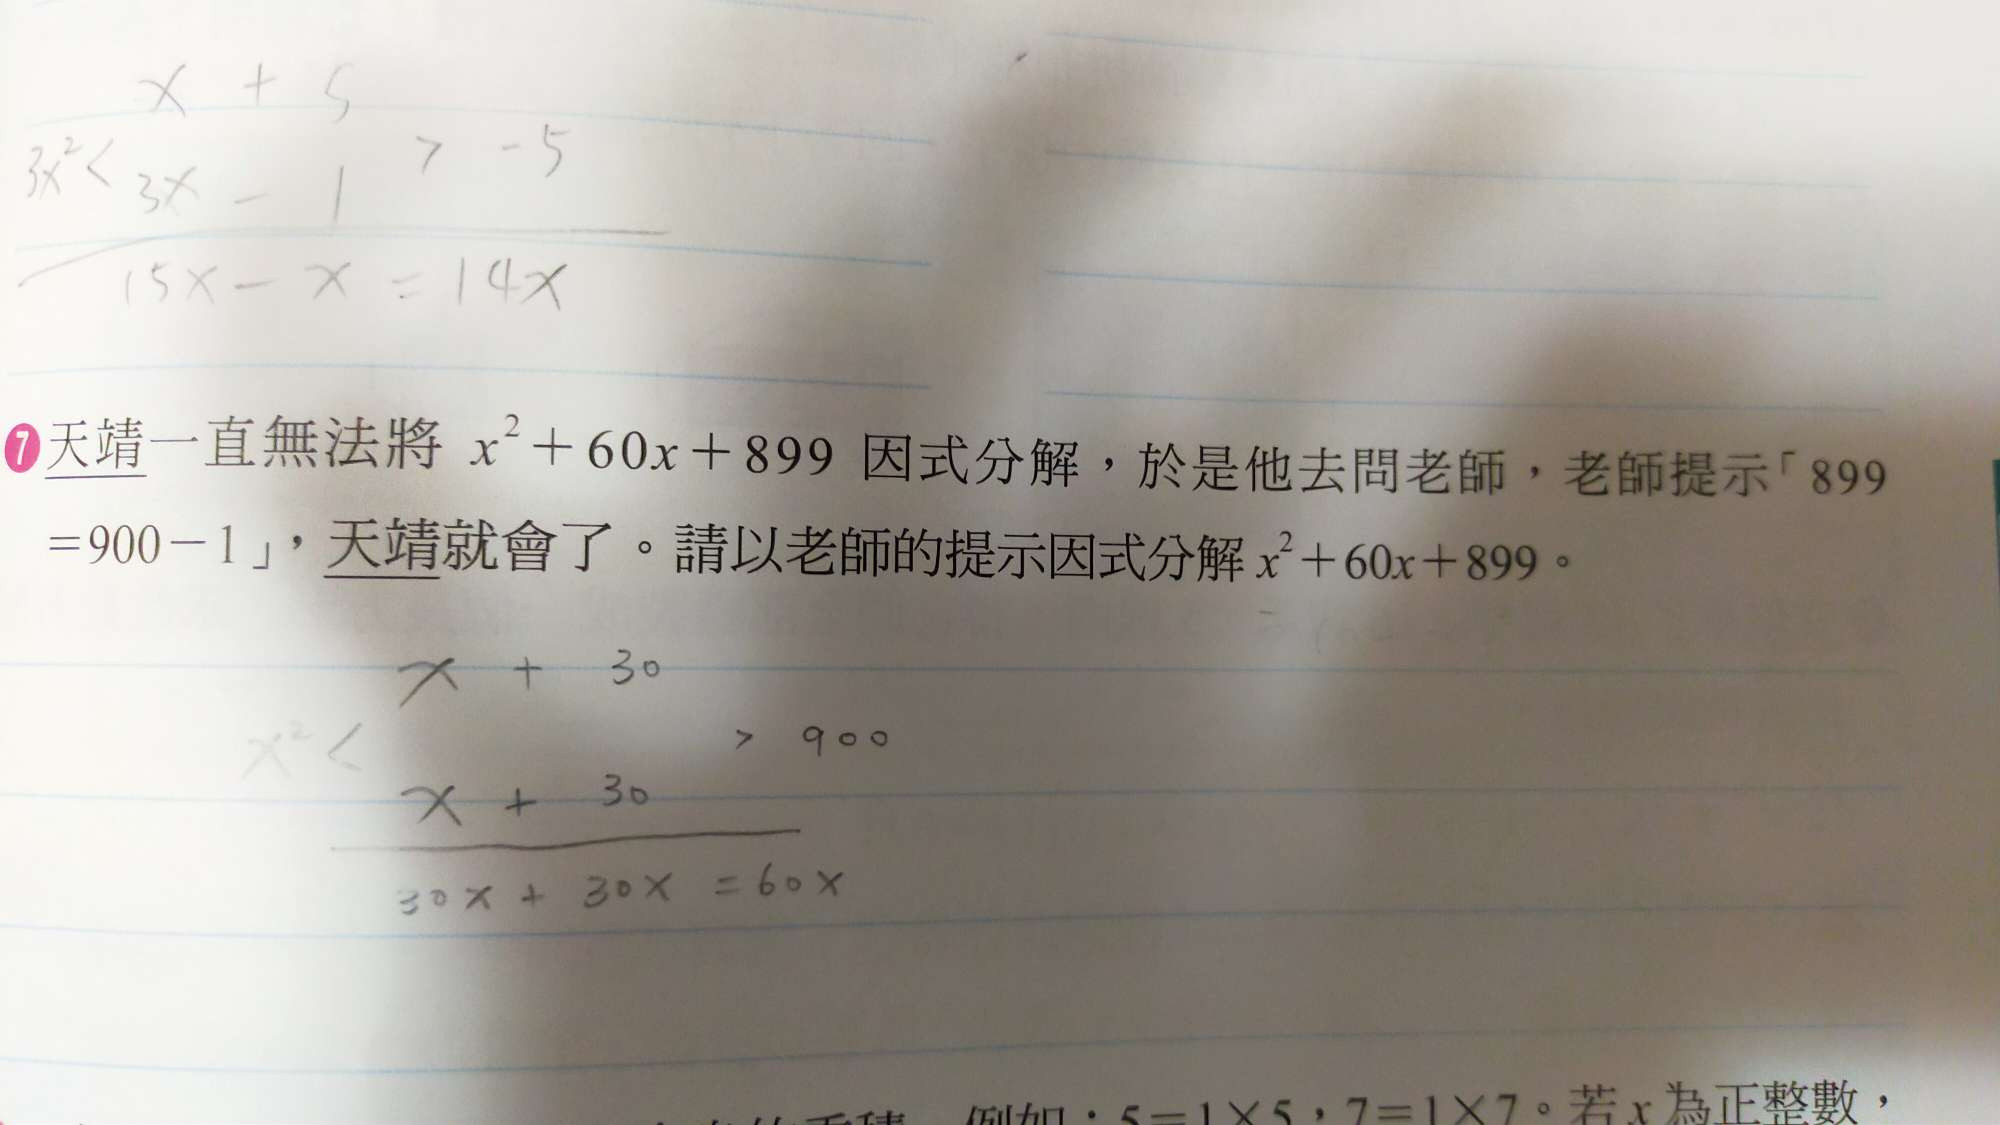 x + 5
3x² < > -5
3x - 1
15x - x = 14x
7 天靖一直無法將 x²+60x+899 因式分解，於是他去問老師，老師提示「899
=900-1」，天靖就會了。請以老師的提示因式分解 x²+60x+899。
x + 30
x² < > 900
x + 30
30x + 30x = 60x
例如：5=1×5，7=1×7。若 x 為正整數，